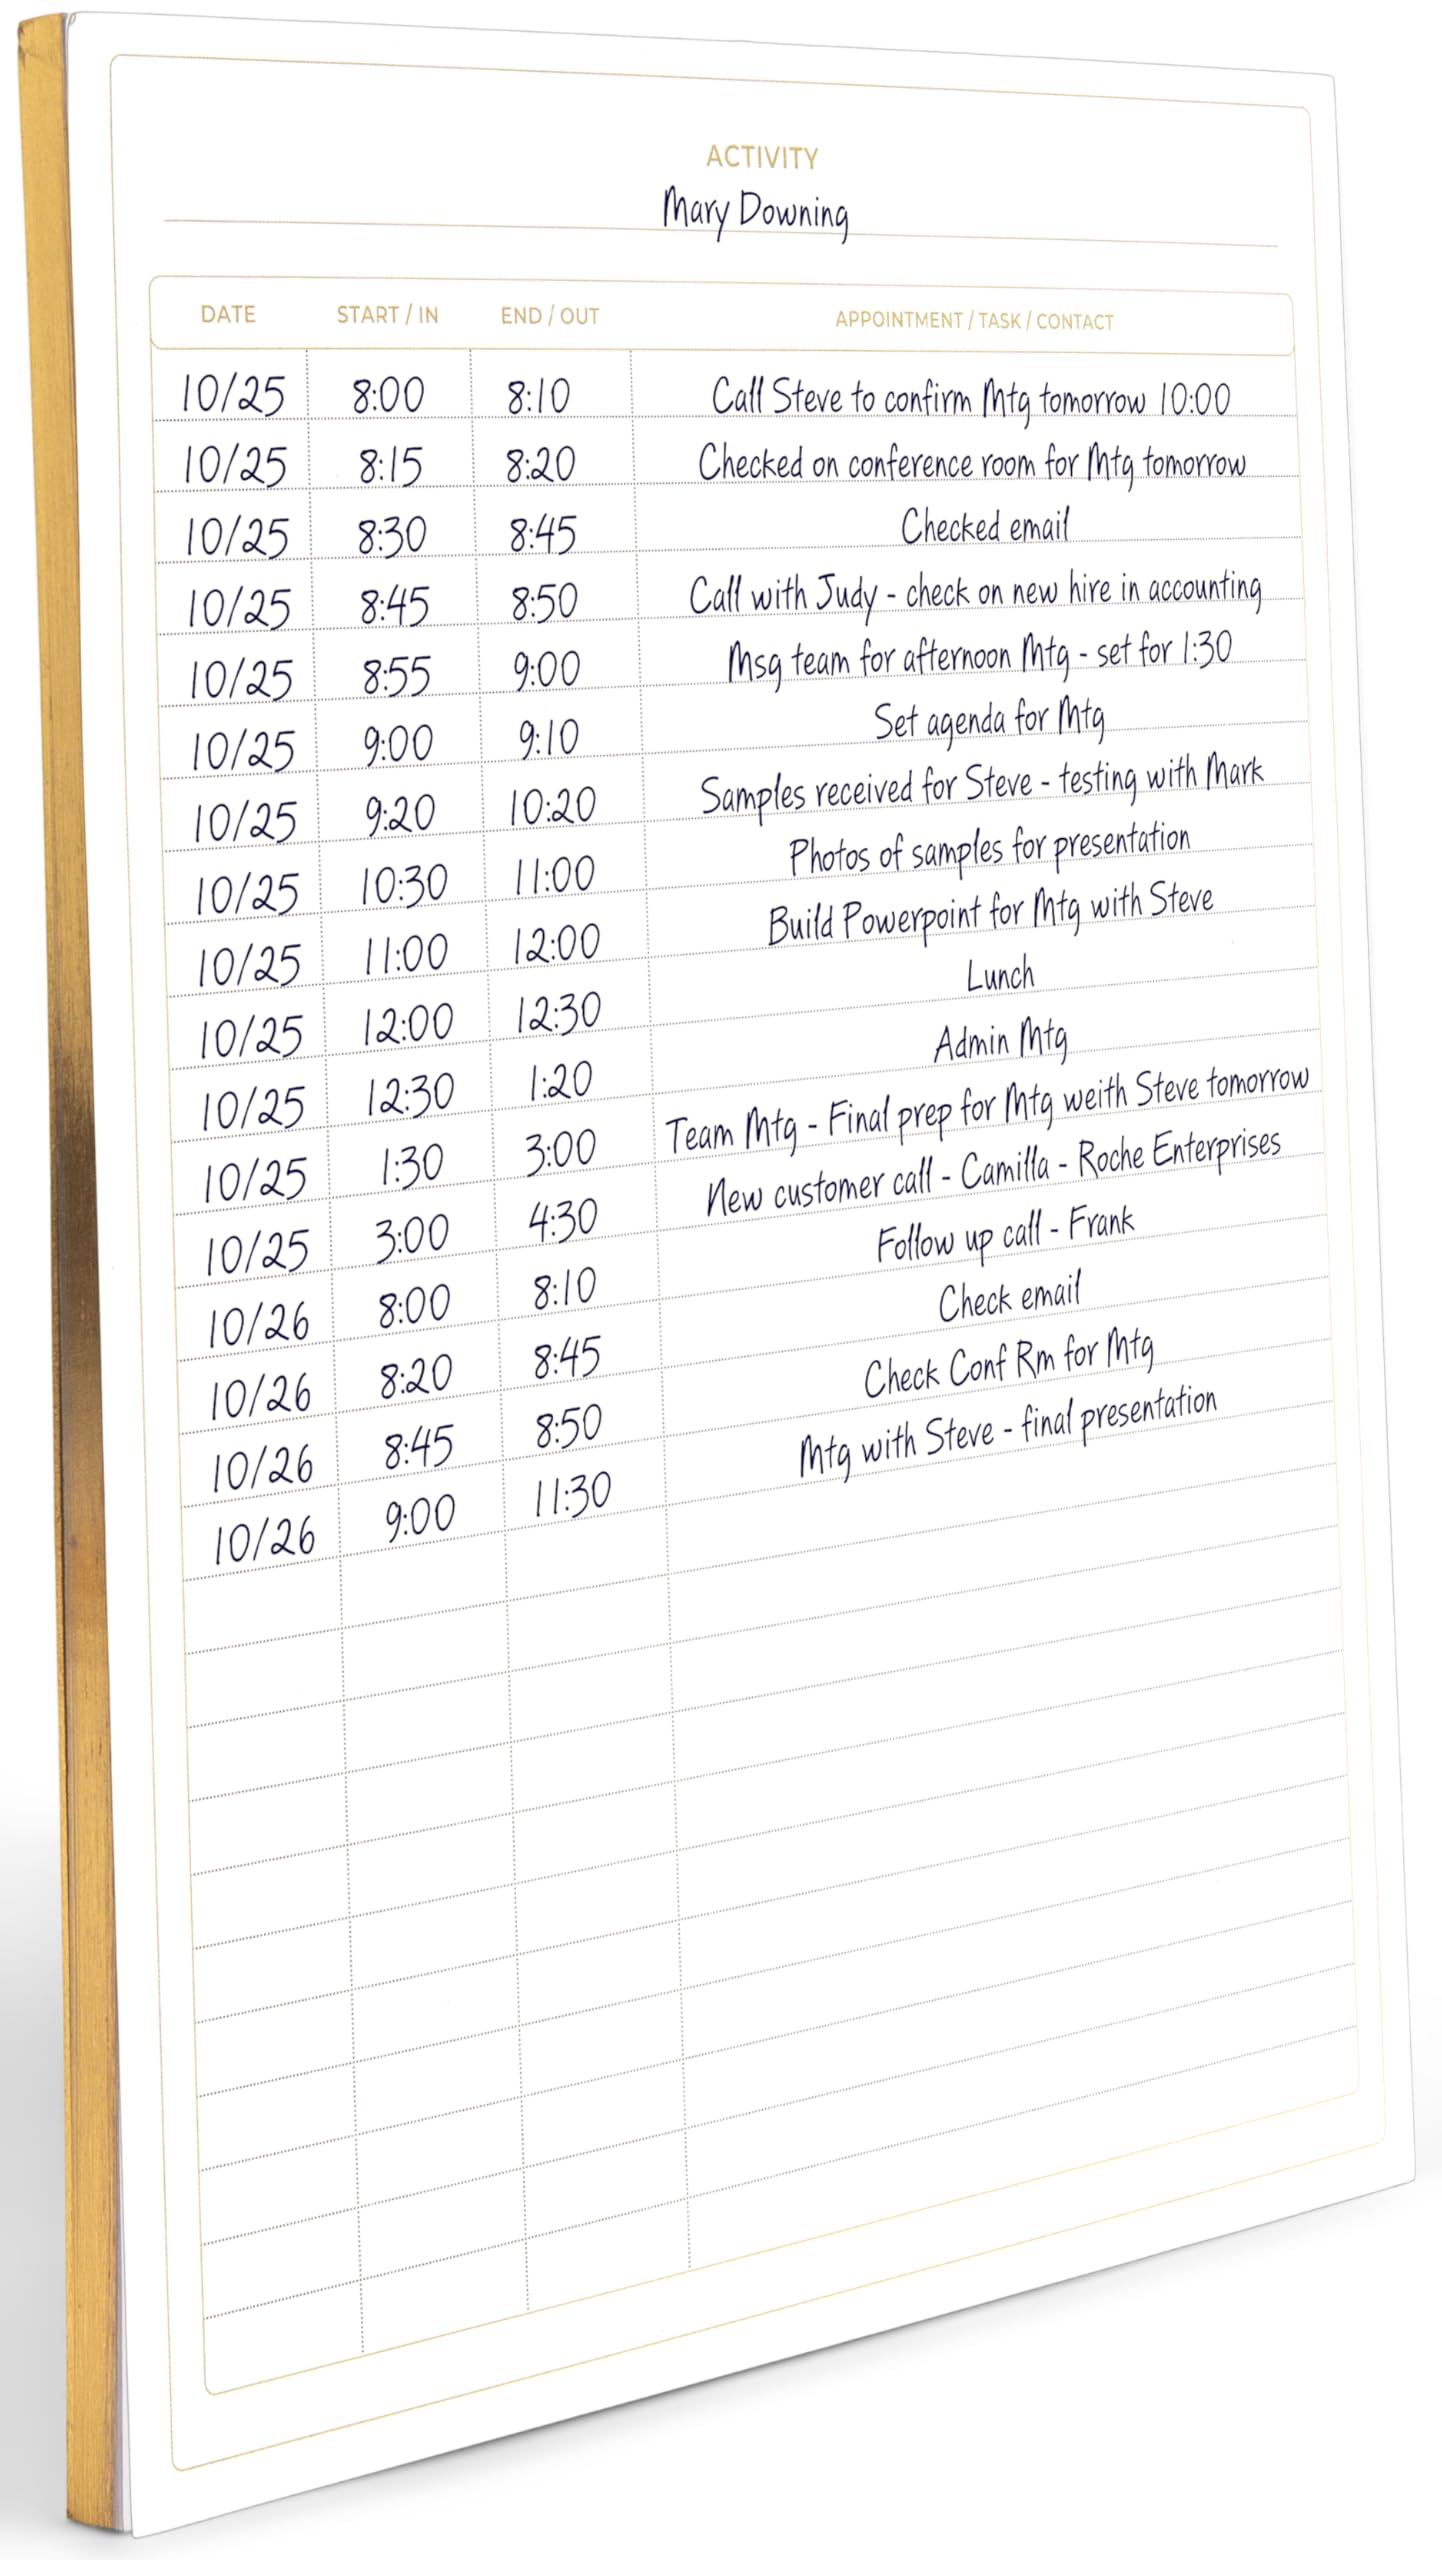 ACTIVITY
Mary Downing
DATE START / IN END / OUT APPOINTMENT / TASK / CONTACT
10/25 8:00 8:10 Call Steve to confirm Mtg tomorrow 10:00
10/25 8:15 8:20 Checked on conference room for Mtg tomorrow
10/25 8:30 8:45 Checked email
10/25 8:45 8:50 Call with Judy - check on new hire in accounting
10/25 8:55 9:00 Msg team for afternoon Mtg - set for 1:30
10/25 9:00 9:10 Set agenda for Mtg
10/25 9:20 10:20 Samples received for Steve - testing with Mark
10/25 10:30 11:00 Photos of samples for presentation
10/25 11:00 12:00 Build Powerpoint for Mtg with Steve
10/25 12:00 12:30 Lunch
10/25 12:30 1:20 Admin Mtg
10/25 1:30 3:00 Team Mtg - Final prep for Mtg weith Steve tomorrow
10/25 3:00 4:30 New customer call - Camilla - Roche Enterprises
10/26 8:00 8:10 Follow up call - Frank
10/26 8:20 8:45 Check email
10/26 8:45 8:50 Check Conf Rm for Mtg
10/26 9:00 11:30 Mtg with Steve - final presentation